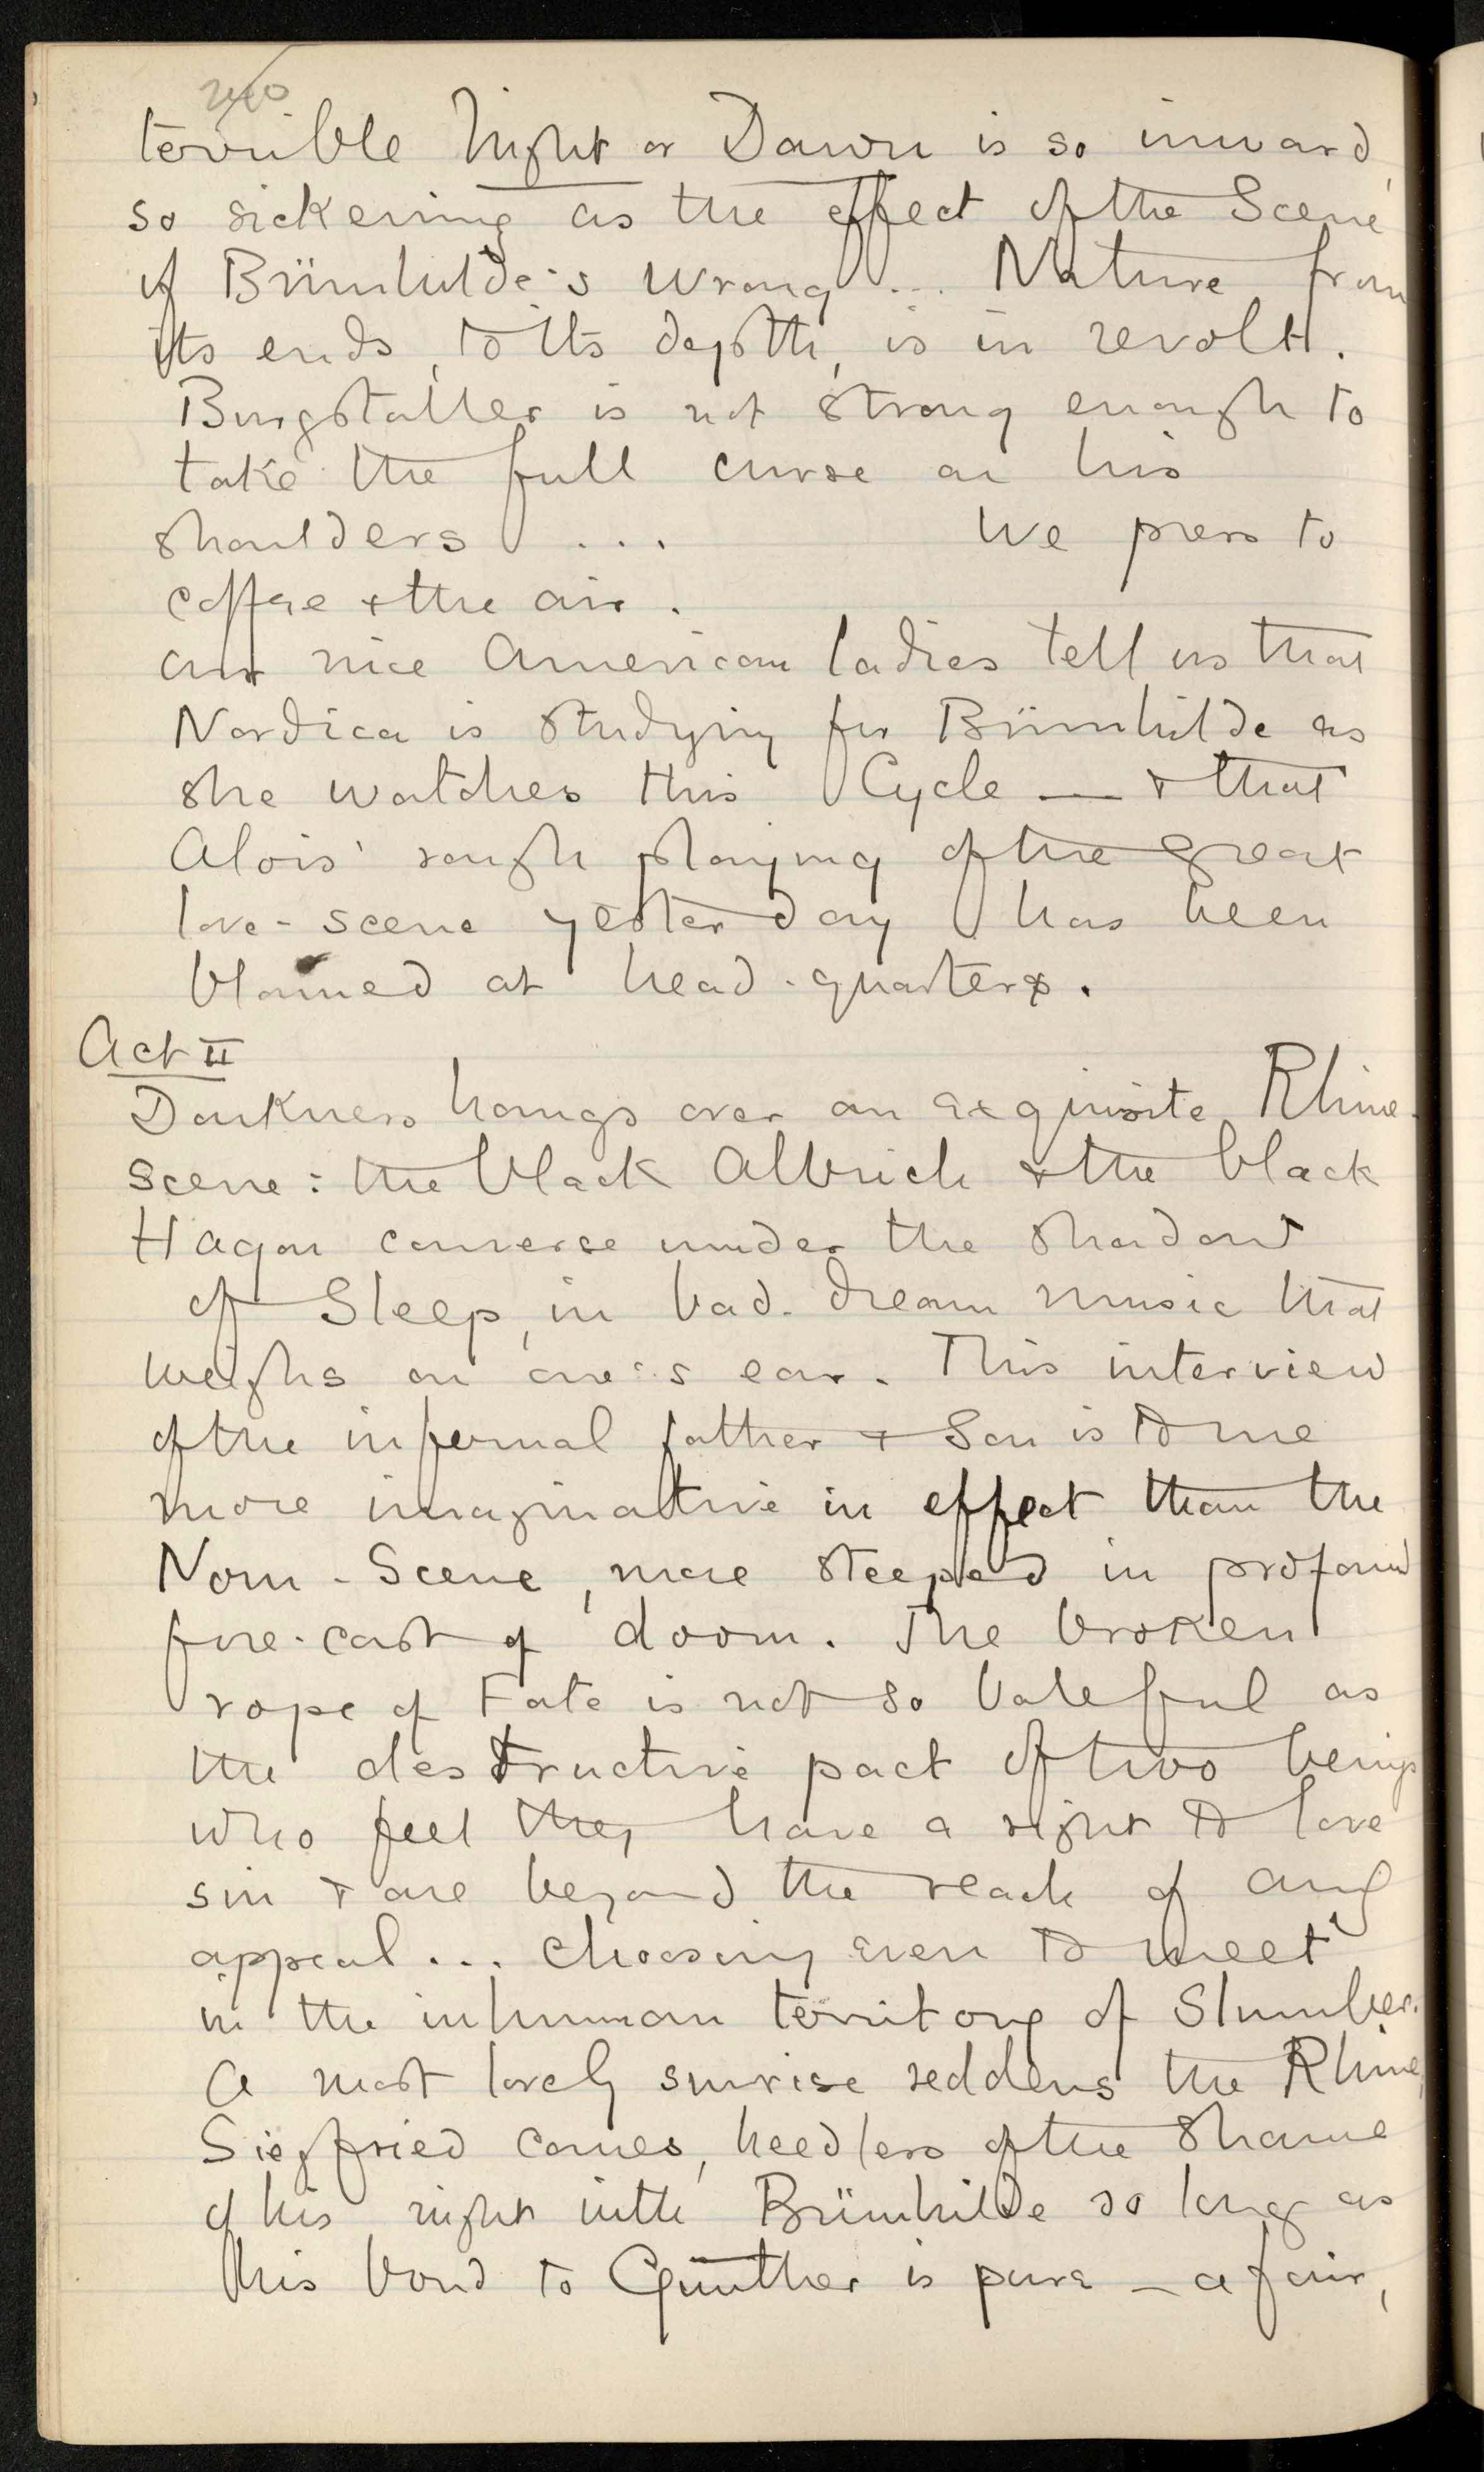 terrible Night or Dawn is so inward,
so sickening as the effect of the Scene
of Brünhilde's wrong ... Nature from
its ends, to its depth, is in revolt.
Burgstaller is not strong enough to
take the full curse on his
shoulders ... We press to
coffee & the air.
Our nice American ladies tell us that
Nordica is studying for Brünhilde as
she watches this Cycle — & that
Alois' rough playing of the great
love-scene yesterday has been
blamed at head-quarters.
Act II
Darkness hangs over an exquisite Rhine-
scene: the black Albrich & the black
Hagan converse under the shadow
of Sleep, in bad-dream music that
weighs on one's ear. This interview
of the infernal father & Son is to me
more imaginative in effect than the
Norn-Scene, more steeped in profound
fore-cast of doom. The broken
rope of Fate is not so baleful as
the destructive pact of two beings
who feel they have a right to love
sin & are beyond the reach of any
appeal... choosing even to meet
in the inhuman territory of Slumber.
A most lovely sunrise reddens the Rhine,
Siegfried comes, heedless of the shame
of his night with Brünhilde so long as
his bond to Günther is pure — a fair,